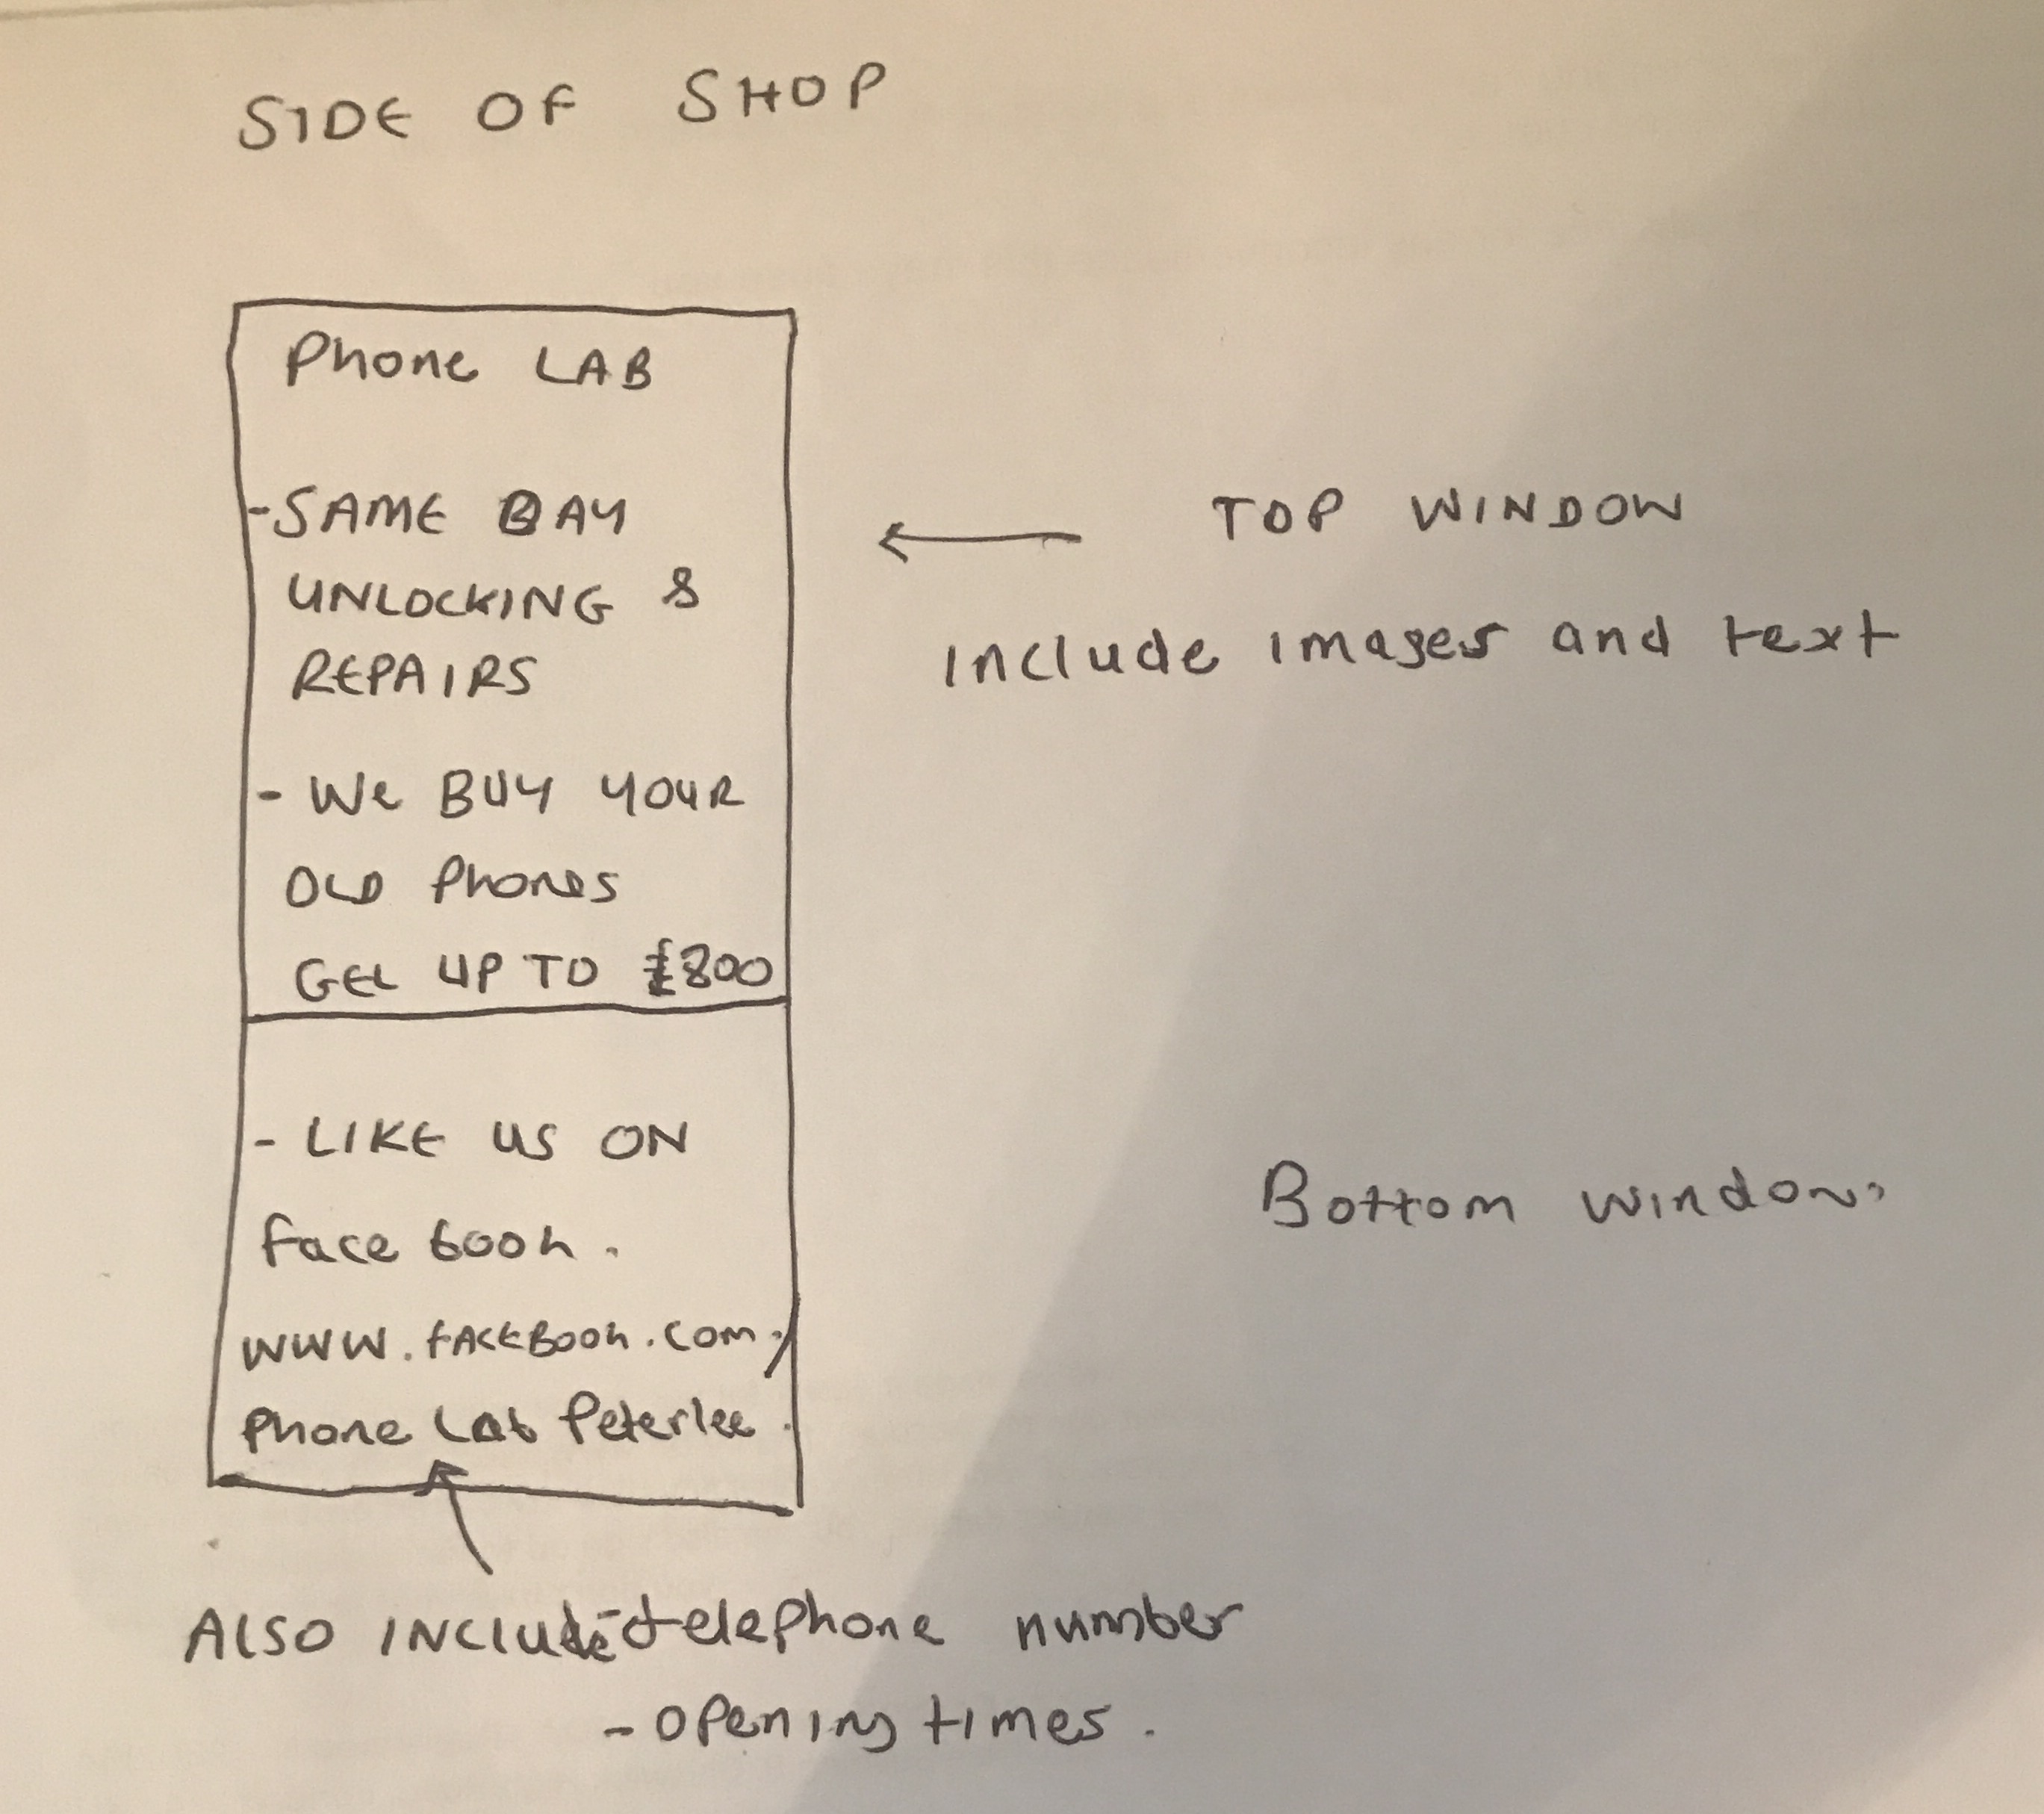 SIDE OF SHOP
Phone LAB
-SAME DAY
UNLOCKING &
REPAIRS
- We BUY YOUR
OLD Phones
GET UP TO £800
← TOP WINDOW
include images and text
- LIKE US ON
face book.
www.facebook.com/
Phone Lab Peterlee.
Bottom window.
ALSO INCLUDE - telephone number
- opening times.